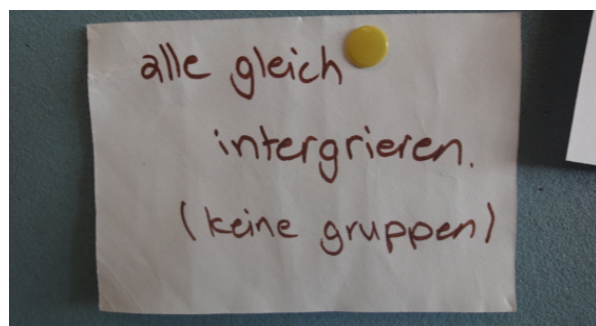 alle gleich
intergrieren.
(keine gruppen)